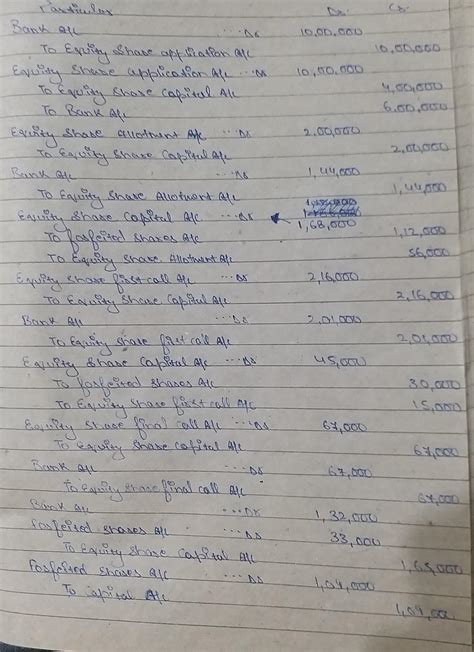 Particulars Dr. Cr.
Bank A/c ...Dr 10,00,000
To Equity Share application A/c 10,00,000
Equity Share application A/c ...Dr 10,00,000
To Equity Share Capital A/c 4,00,000
To Bank A/c 6,00,000
Equity Share Allotment A/c ...Dr 2,00,000
To Equity Share Capital A/c 2,00,000
Bank A/c ...Dr 1,44,000
To Equity Share Allotment A/c 1,44,000
Equity Share Capital A/c ...Dr 1,68,000
To forfeited shares A/c 1,12,000
To Equity Share Allotment A/c 56,000
Equity Share first call A/c ...Dr 2,16,000
To Equity Share Capital A/c 2,16,000
Bank A/c ...Dr 2,01,000
To Equity Share first call A/c 2,01,000
Equity Share Capital A/c ...Dr 45,000
To forfeited shares A/c 30,000
To Equity Share first call A/c 15,000
Equity Share final call A/c ...Dr 67,000
To Equity Share Capital A/c 67,000
Bank A/c ...Dr 67,000
To Equity Share final call A/c 67,000
Bank A/c ...Dr 1,32,000
Forfeited shares A/c ...Dr 33,000
To Equity Share Capital A/c 1,65,000
Forfeited shares A/c ...Dr 1,09,000
To Capital A/c 1,09,000